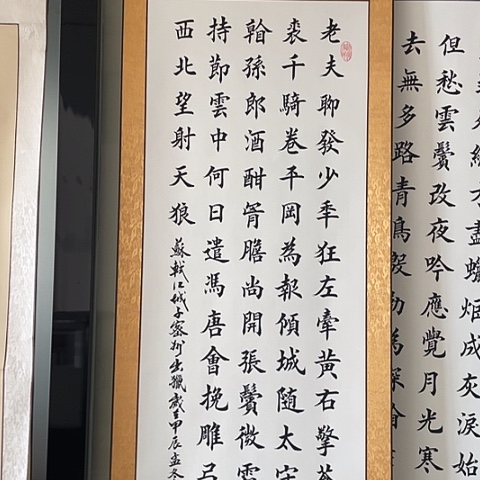 絲方盡蠟炬成灰淚始
但愁雲鬢改夜吟應覺月光寒
去無多路青鳥殷勤為探看
老夫聊發少秊狂左牽黃右擎蒼
裘千騎卷平岡為報傾城隨太守
看孫郎酒酣胷膽尚開張鬢微
持節雲中何日遣馮唐會挽雕弓
西北望射天狼
蘇軾江城子密州出獵歲在甲辰孟冬